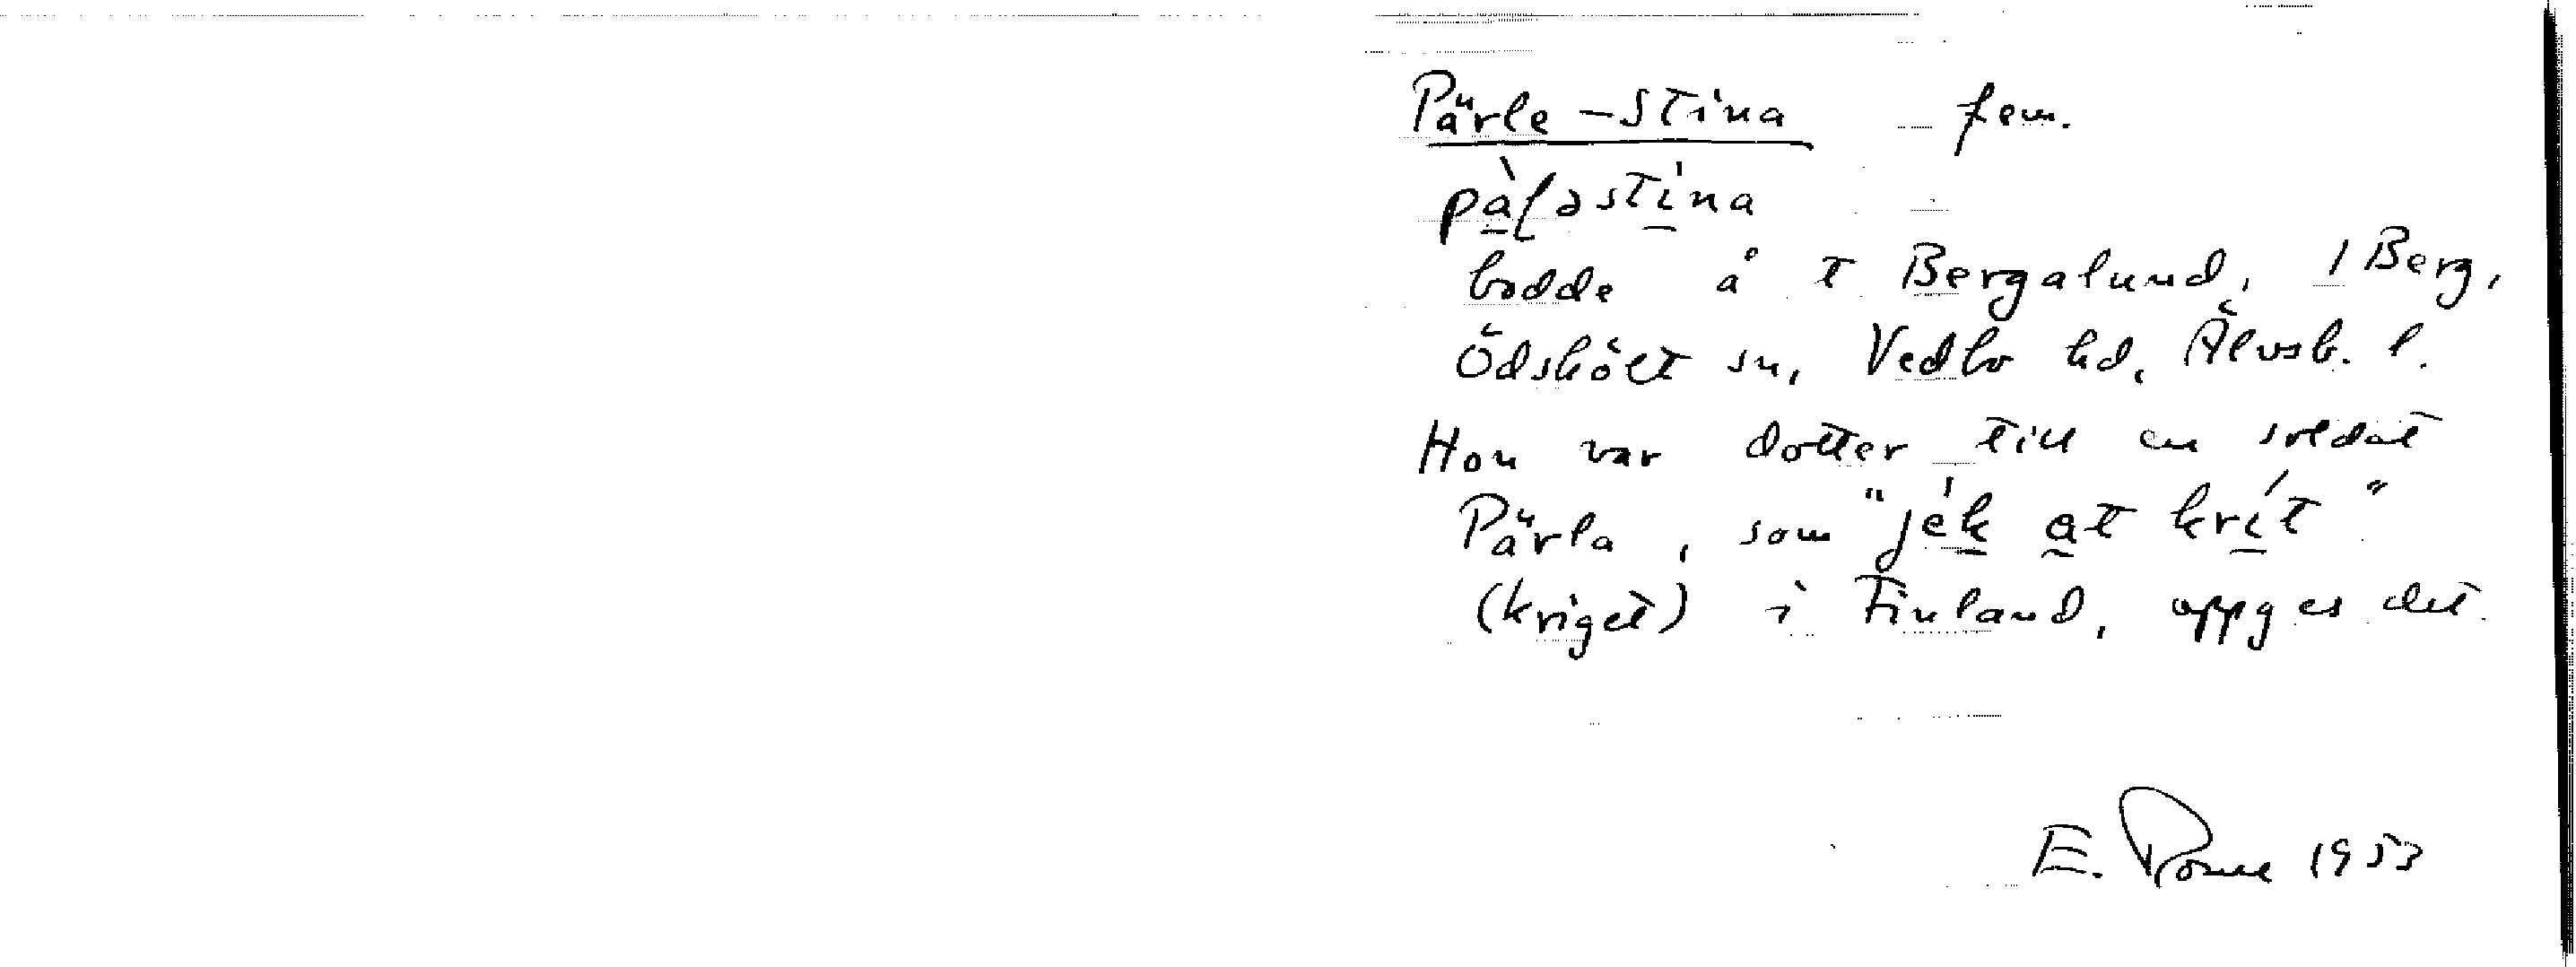 Pärle-Stina fem.
pàlastina
bodde å t Bergalund, 1 Berg,
Ödskölt sn, Vedbo hd, Älvsb. l.
Hon var dotter till en soldat
Pärla, som "jék at krít"
(kriget) i Finland, uppges det.
E. 1953